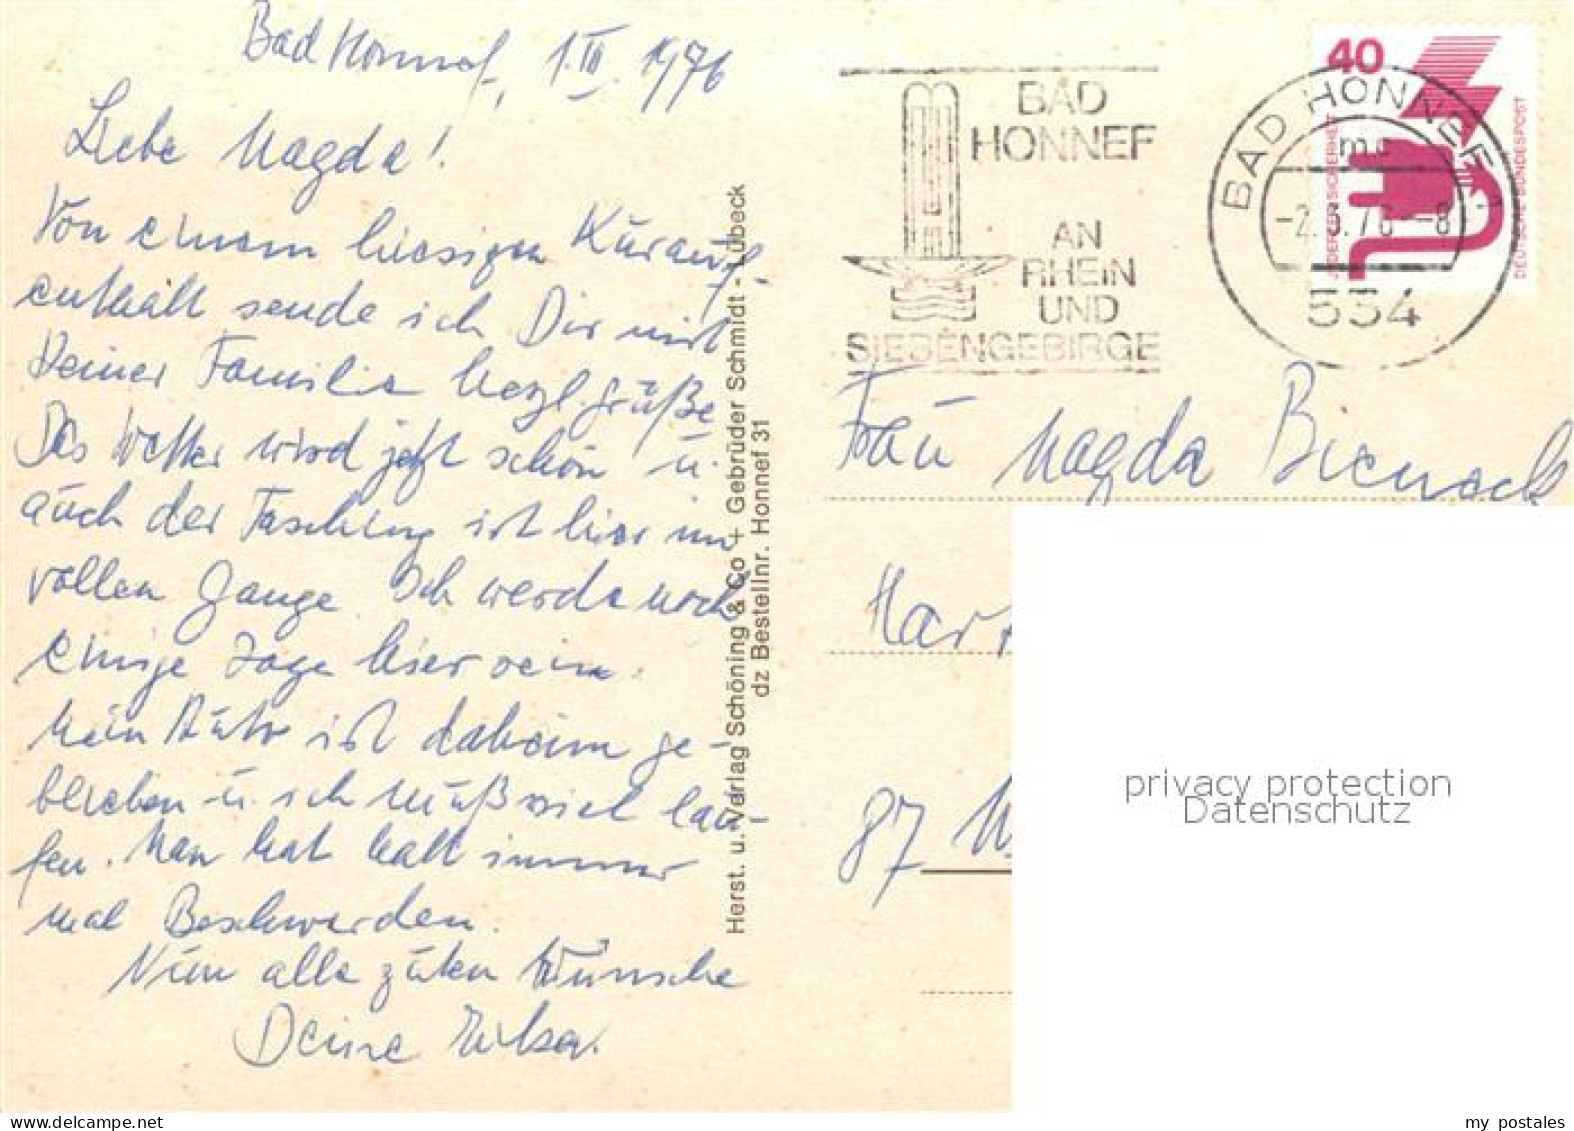 Bad Honnef, 1.III.1976
Liebe Magda!
Von einem hiesigen Kurauf-
enthalt sende ich Dir mit
Deiner Familie herzl. Grüße
Das Wetter wird jetzt schön u.
auch der Fasching ist hier im
vollen Gange. Ich werde noch
einige Tage hier sein.
Mein Auto ist daheim ge-
blieben u. ich muß viel lau-
fen. Man hat halt immer
mal Beschwerden.
Nun alle guten Wünsche
Deine
Herst. u. Verlag Schöning & Co + Gebrüder Schmidt - Lübeck
dz Bestellnr. Honnef 31
BAD
HONNEF
AN
RHEIN
UND
SIEBENGEBIRGE
40
JEDERZEIT SICHERHEIT
DEUTSCHE BUNDESPOST
BAD HONNEF 1
mc
-2.3.76-8
534
Frau Magda Bieneck
87
privacy protection
Datenschutz
delcampe.net
my_postales